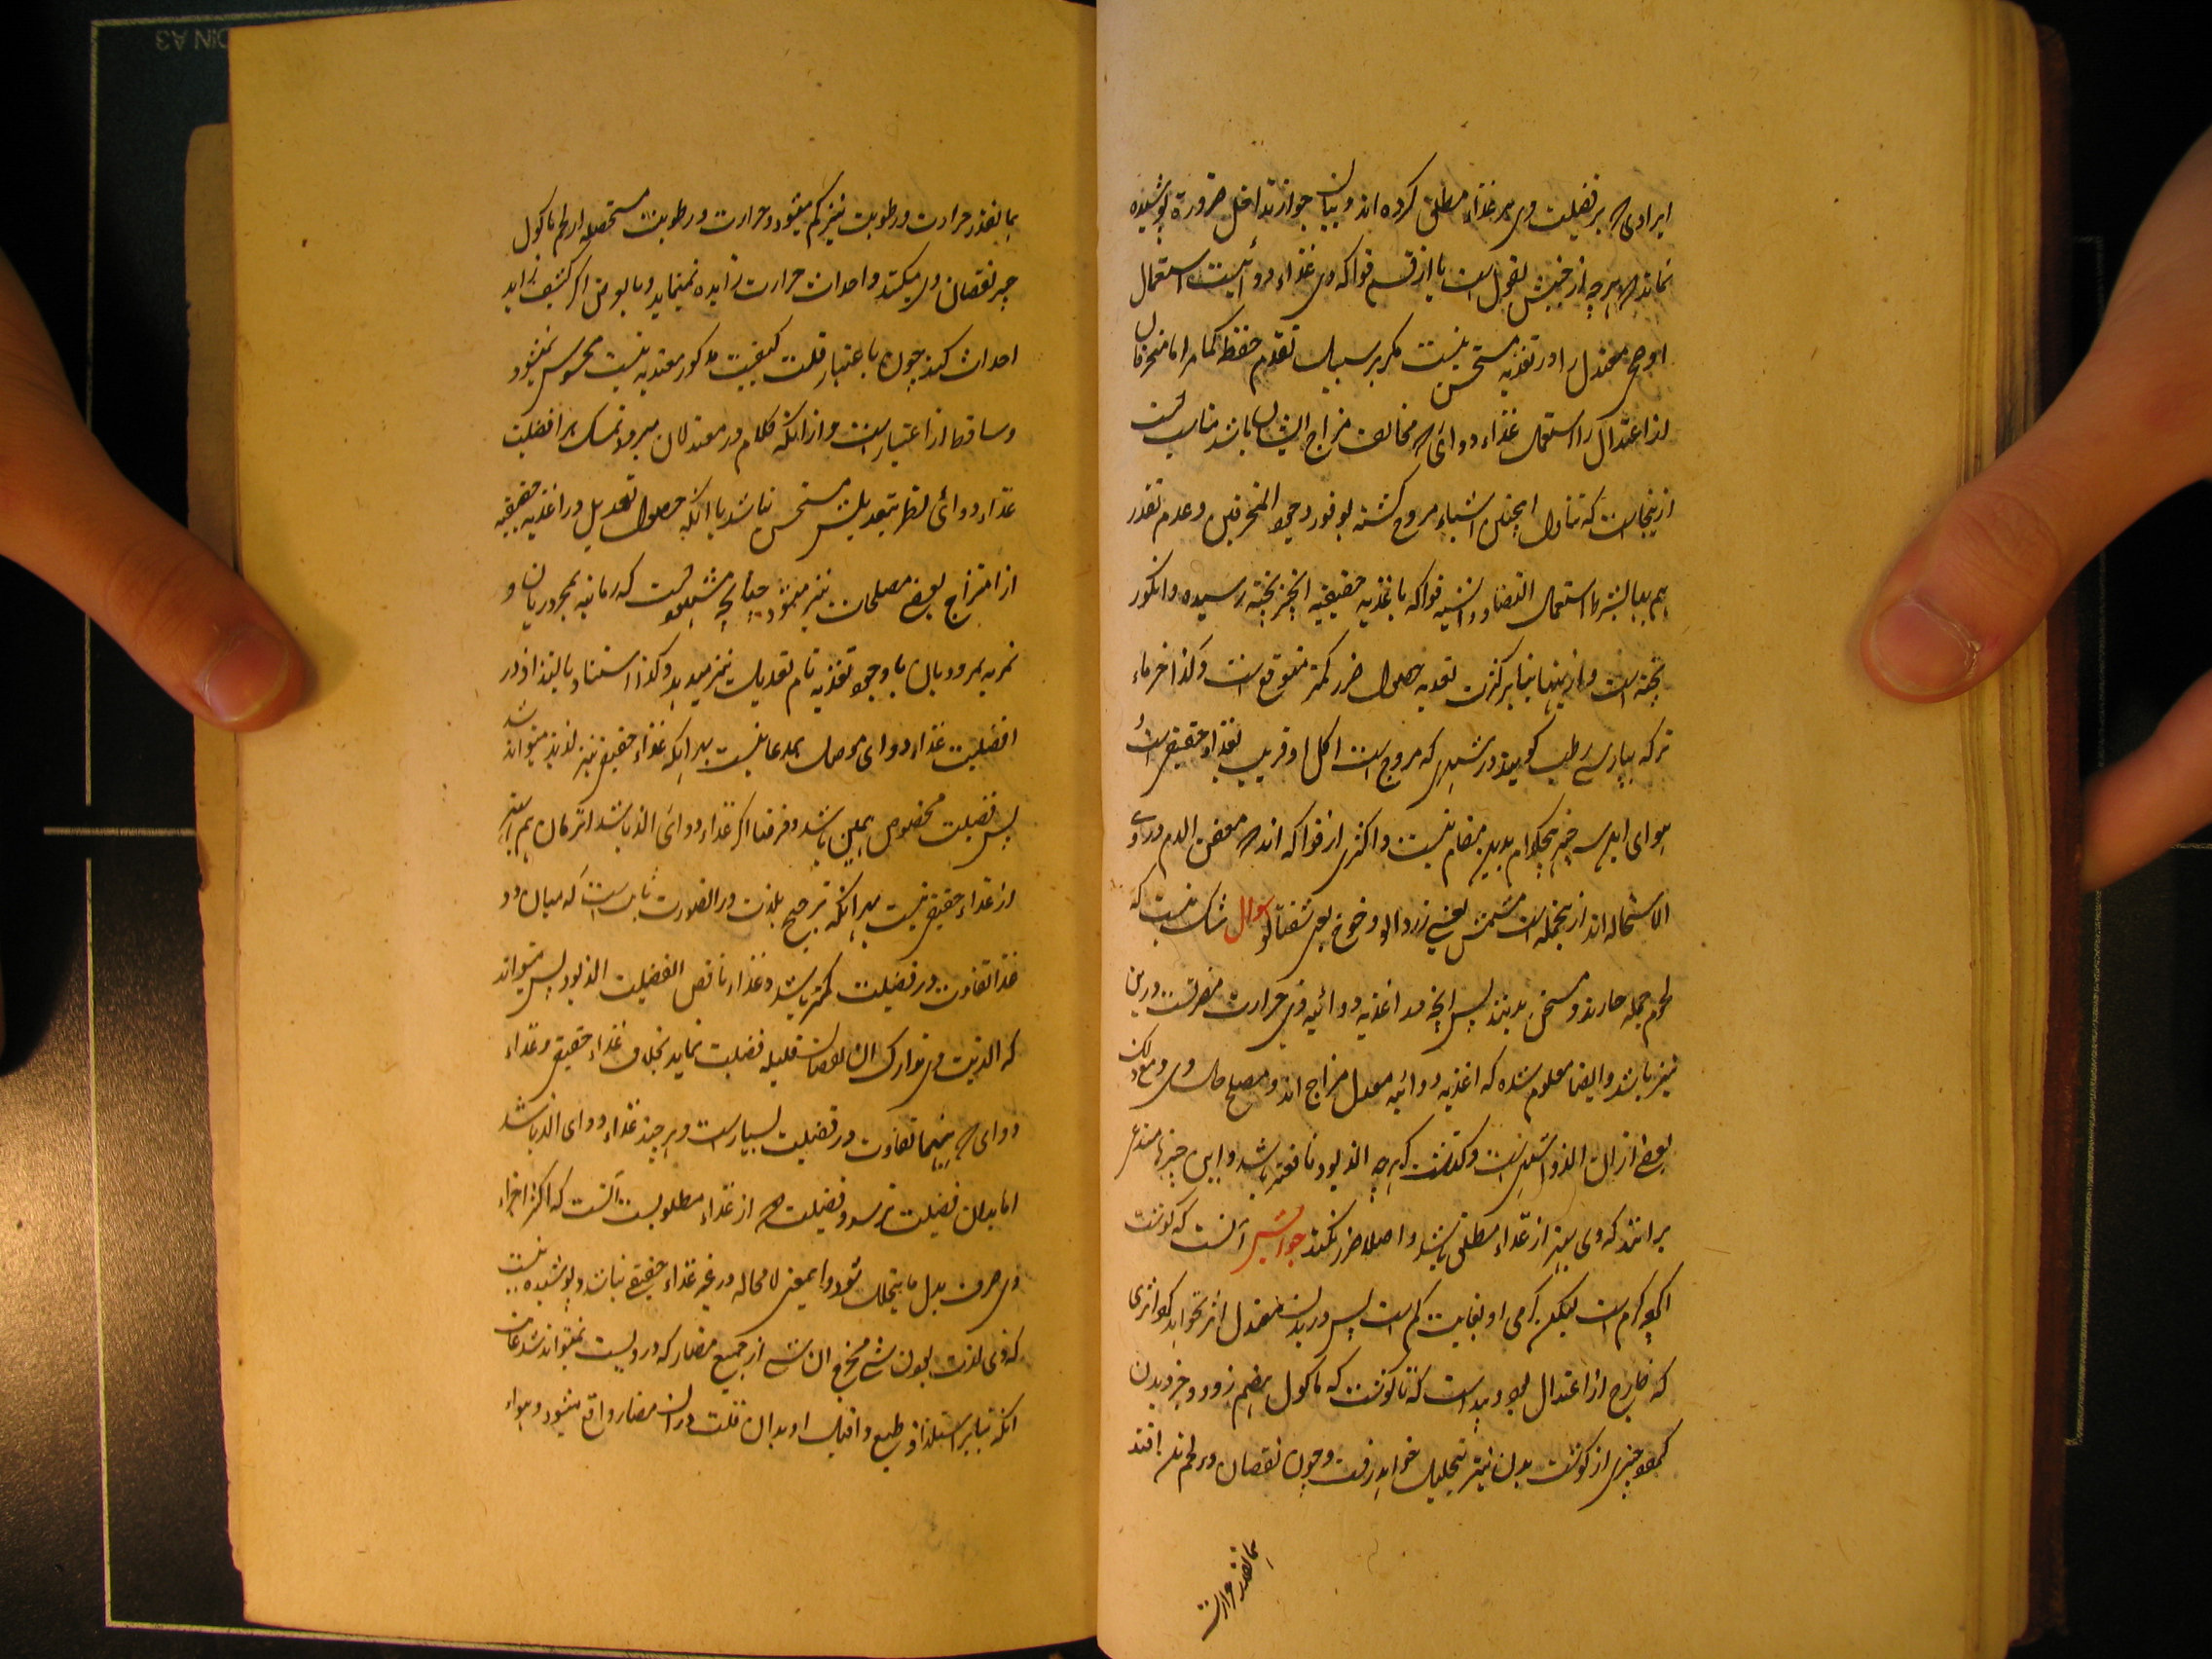 ایرادی که بر فضیلت وی بر غذاء مطلق کرده اند و بیان جواز تداخل ضرورة پوشیده
نماند که هرچه از جنس بقول است یا از قسم فواکه وی غذاء دوائیست استعمال
معتدل را در تغذیه مستحسن نیست مگر بر سبیل تقدم حفظ اما منحرفان
اعتدال را استعمال غذاء دوائی که مخالف مزاج ایشان باشد مناسب است
ازینجاست که تناول اینچنین اشیاء مروج گشته بوفور وجود المنحرفین و عدم تقذر
استعمال فواکه باغذیه حقیقیه انجیر پخته رسیده و انگور
پخته است و ازینها بنابر کثرت تغذیه حصول ضرر کمتر متوقع است و کذا خرماء
تر که بپارسی رطب گویند در شهری که مروج است اکل او قریب بغذاء حقیقی است
سوای این سه چیز هیچکدام بدین مقام نیست و اکثری از فواکه اند که معفن الدم و ردی
الاستحاله اند ازینجمله است مشمش یعنی زردالو و خوخ یعنی شفتالو سوال شک نیست که
لحوم جمله حارند و مسخن بدنند پس انچه در اغذیه دوائیه وی حرارت مضر تست درین
نیز باشد و ایضا معلوم شده که اغذیه دوائیه معدل مزاج اند و مصلح حال وی و مع ذلک
بعضی ازان الذ و اشهی است و گفته اند که هرچه الذ بود نافعتر باشد و این چیزها مستدعی
برانند که وی بهتر از غذاء مطلق باشد و اصلا ضرر نکند جوابش آنست که گوشت
اگرچه گرم است لیکن گرمی او بغایت کم است پس در بدن معتدل اثر نخواهد کرد اثری
که خارج از اعتدال بود و پیداست که تا گوشت که ماکول هضم شود و جزو بدن
گردد چیزی از گوشت بدن نیز بتحلیل خواهد رفت و چون نقصان در لحم بدن افتد
بمانقدر حرارت
بمانقدر حرارت و رطوبت نیز کم میشود و حرارت و رطوبت مستحصله از لحم ماکول
جبر نقصان وی میکند و احداث حرارت زایده نمینماید و بالفرض اگر کیفیت زاید
احداث کند چون باعتبار قلت کیفیت مذکور معتدبه نیست محسوس نمیشود
و ساقط از اعتبار است و ازانکه کلام در معتدلان میرود تمسک بر افضلیت
غذاء دوائی نظر بتعدیلش مستحسن نباشد با آنکه حصول تعدیل در اغذیه حقیقیه
از امتزاج بعضی مصلحات نیز میشود چنانچه مشهود است که رمانیه بمحروریان و
تمریه بمبرودان با وجود تغذیه تام تعدیل نیز میدهد و کذا استناد بالتذاذ در
افضلیت غذاء دوائی موصل بمدعا نیست بهر انکه غذاء حقیقی نیز لذیذ میتواند شد
پس فضیلت مخصوص بهمین باشد و فرضا اگر غذاء دوائی الذ باشد اثر آن هم بهتر
از غذاء حقیقی نیست بهر انکه ترجیح بلذت در انصورت ثابت است که میان دو
غذا تفاوت در فضیلت کمتر باشد و غذاء ناقص الفضیلت الذ بود پس میتواند
که الذیت وی تدارک آن نقصان قلیله فضیلت نماید بخلاف غذاء حقیقی و غذاء
دوائی که بینهما تفاوت در فضیلت بسیار است و هر چند غذاء دوائی الذ باشد
اما بدان فضیلت نرسد و فضیلت که از غذاء مطلوبست آنست که اکثر اجزاء
وی صرف بدل ما یتحلل شود و این معنی لا محاله در غیر غذاء حقیقی نباشد و پوشیده نیست
که وی لذت بودن شی مخرج آن شی از جمیع مضار که در ویست نمیتواند شد غایت
انکه بنابر استلذاذ طبع و اقبال او بدان قلت دران مضار واقع میشود و سواء